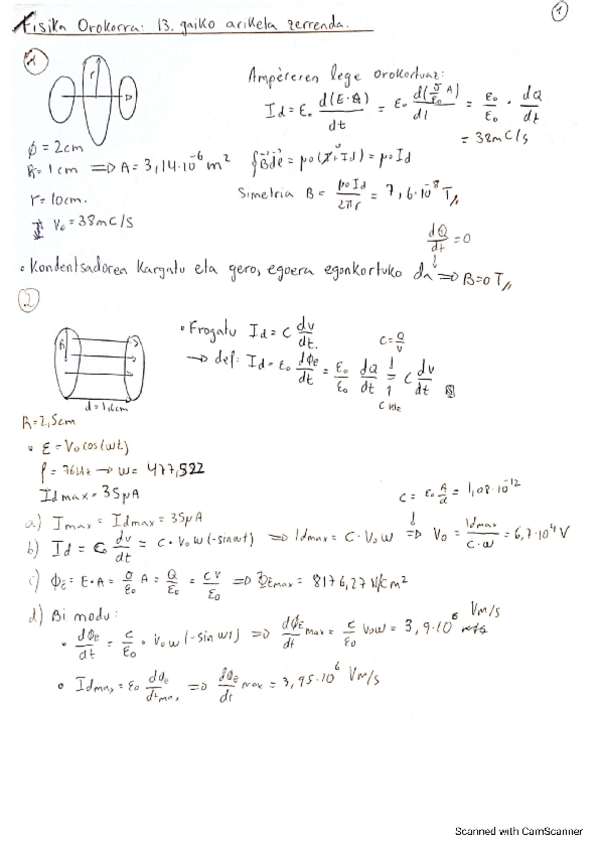 Fisika Orokorra: 13. gaiko ariketa zerrenda.
1
1
r
Ampèreren lege orokortuaz:
Id = ε₀ d(E·A)/dt = ε₀ d(σ/ε₀ A)/dt = ε₀/ε₀ · dQ/dt
= 38mC/s
φ = 2cm
R = 1cm ⇒ A = 3,14·10⁻⁶ m²
∮B⃗dℓ⃗ = μ₀(I + Id) = μ₀Id
r = 10cm.
Simetria B = μ₀Id/2πr = 7,6·10⁻⁸ T//
V₀ = 38mC/s
dQ/dt = 0
• Kondentsadorea kargatu eta gero, egoera egonkortuko da ⇒ B=0 T//
2
R
d = 1,6cm
• Frogatu Id = C dv/dt.
C = Q/V
→ def: Id = ε₀ dΦE/dt = ε₀/ε₀ dQ/dt = C dv/dt
C kte
R = 2,5cm
• ε = V₀cos(wt)
f = 76Hz → w = 477,522
Idmax = 35μA
C = ε₀ A/d = 1,08·10⁻¹²
a) Imax = Idmax = 35μA
b) Id = C dv/dt = C·V₀w(-sinwt) ⇒ Idmax = C·V₀w ⇒ V₀ = Idmax/C·w = 6,7·10⁴ V
c) ΦE = E·A = σ/ε₀ A = Q/ε₀ = CV/ε₀ ⇒ ΦEmax = 8176,27 N/Cm²
d) Bi modu:
• dΦE/dt = C/ε₀ · V₀w(-sin wt) ⇒ dΦE/dt max = C/ε₀ V₀w = 3,9·10⁶ Vm/s
• Idmax = ε₀ dΦE/dt max ⇒ dΦE/dt max = 3,95·10⁶ Vm/s
Scanned with CamScanner